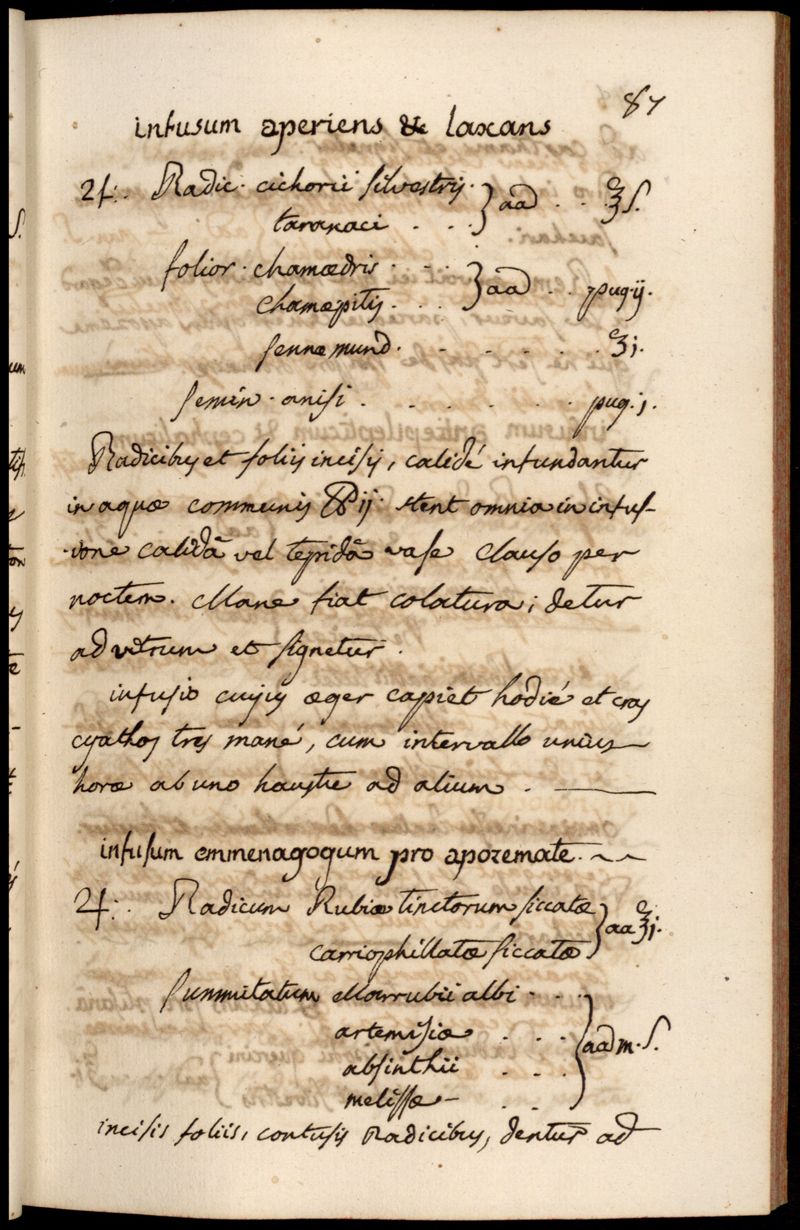 87
infusum aperiens & laxans
♃: Radic. cichorii silvestris. } aa . . ℥ S.
taraxaci . . .
folior. chamædris . . . } aa . . pug ij.
chamæpitis . . .
sennæ mund. . . . . . ℥j.
semin. anisi . . . . . . pug. j.
Radicibus et foliis incisis, calidé infundantur
in aquæ communis ℔ij. stent omnia in infus-
ione calidâ vel tepidâ vase clauso per
noctem. Mane fiat colatura; detur
ad vitrum et signetur.
infusio cujus æger capiet hodié et cras
cyathos tres mané, cum intervallo unius
horæ ab uno haustu ad alium.
infusum emmenagogum pro apozemate.
♃: Radicum Rubiæ tinctorum siccatæ } aa ℥j.
carriophillatæ siccatæ
summitatum Marrubii albi . . . } aa m. S.
artemisiæ . . .
absinthii . . .
melissæ . .
incisis foliis, contusis Radicibus, dentur ad